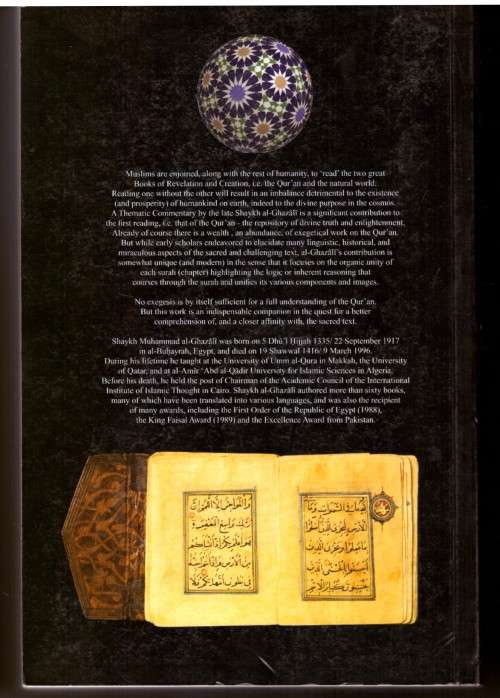 Muslims are enjoined, along with the rest of humanity, to 'read' the two great
Books of Revelation and Creation, i.e. the Qur'an and the natural world.
Reading one without the other will result in an imbalance detrimental to the existence
(and prosperity) of humankind on earth, indeed to the divine purpose in the cosmos.
A Thematic Commentary by the late Shaykh al-Ghazālī is a significant contribution to
the first reading, i.e. that of the Qur'an - the repository of divine truth and enlightenment.
Already of course there is a wealth , an abundance, of exegetical work on the Qur'an.
But while early scholars endeavored to elucidate many linguistic, historical, and
miraculous aspects of the sacred and challenging text, al-Ghazālī's contribution is
somewhat unique (and modern) in the sense that it focuses on the organic unity of
each surah (chapter) highlighting the logic or inherent reasoning that
courses through the surah and unifies its various components and images.
No exegesis is by itself sufficient for a full understanding of the Qur'an.
But this work is an indispensable companion in the quest for a better
comprehension of, and a closer affinity with, the sacred text.
Shaykh Muhammad al-Ghazālī was born on 5 Dhū'l Ḥijjah 1335/ 22 September 1917
in al-Buḥayrah, Egypt, and died on 19 Shawwāl 1416/ 9 March 1996.
During his lifetime he taught at the University of Umm al-Qura in Makkah, the University
of Qatar, and at al-Amīr ʿAbd al-Qādir University for Islamic Sciences in Algeria.
Before his death, he held the post of Chairman of the Academic Council of the International
Institute of Islamic Thought in Cairo. Shaykh al-Ghazālī authored more than sixty books,
many of which have been translated into various languages, and was also the recipient
of many awards, including the First Order of the Republic of Egypt (1988),
the King Faisal Award (1989) and the Excellence Award from Pakistan.
في السموات وما
الارض ليجزى الذين اساؤا
بما عملوا ويجزى الذين
احسنوا بالحسنى الذين
يجتنبون كبائر الاثم
والفواحش الا اللمم ان
ربك واسع المغفرة
هو اعلم بكم اذ انشاكم
من الارض واذ انتم اجنة
في بطون امهاتكم فلا